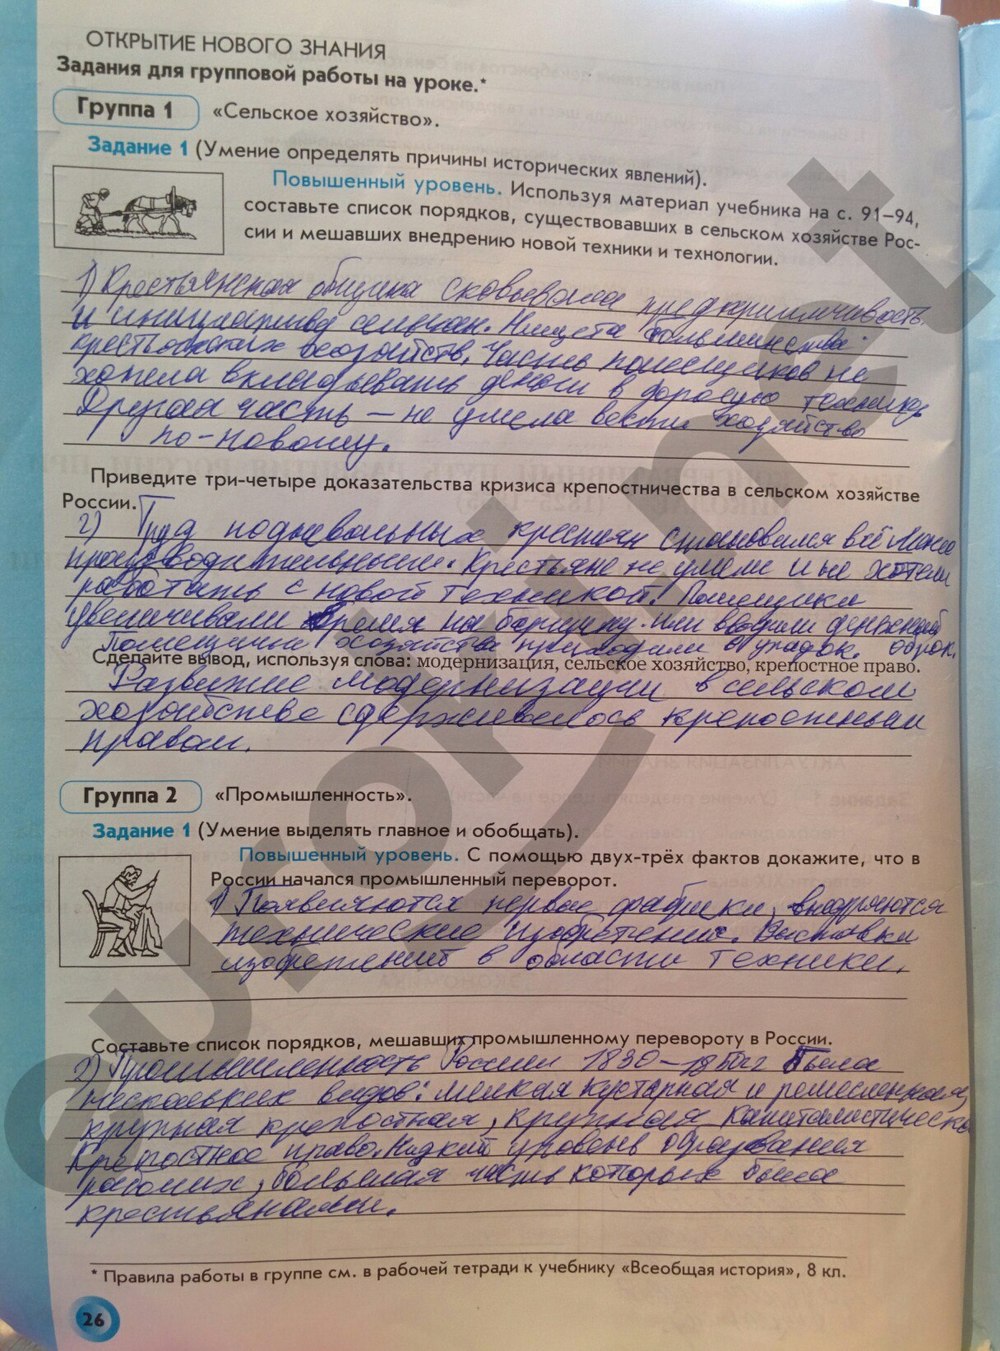 ОТКРЫТИЕ НОВОГО ЗНАНИЯ
Задания для групповой работы на уроке.*
Группа 1 «Сельское хозяйство».
Задание 1 (Умение определять причины исторических явлений).
Повышенный уровень. Используя материал учебника на с. 91–94,
составьте список порядков, существовавших в сельском хозяйстве Рос-
сии и мешавших внедрению новой техники и технологии.
1) Крестьянская община сковывала предприимчивость
и инициативу сельчан. Нищета большинства
крестьянских хозяйств. Часть помещиков не
хотела вкладывать деньги в дорогую технику.
Другая часть – не умела вести хозяйство
по-новому.
Приведите три-четыре доказательства кризиса крепостничества в сельском хозяйстве
России.
2) Труд подневольных крестьян становился всё менее
производительным. Крестьяне не умели и не хотели
работать с новой техникой. Помещики
увеличивали время на барщину или вводили денежный
оброк.
Помещичьи хозяйства приходили в упадок.
Сделайте вывод, используя слова: модернизация, сельское хозяйство, крепостное право.
Развитие модернизации в сельском
хозяйстве сдерживалось крепостным
правом.
Группа 2 «Промышленность».
Задание 1 (Умение выделять главное и обобщать).
Повышенный уровень. С помощью двух-трёх фактов докажите, что в
России начался промышленный переворот.
1) Появляются первые фабрики, внедряются
технические изобретения. Выставки
изобретений в области техники.
Составьте список порядков, мешавших промышленному перевороту в России.
2) Промышленность России 1830–1850гг была
нескольких видов: мелкая кустарная и ремесленная,
крупная крепостная, крупная капиталистическая
Крепостное право. Низкий уровень образования
рабочих, большая часть которых была
крестьянами.
* Правила работы в группе см. в рабочей тетради к учебнику «Всеобщая история», 8 кл.
26
euroki.net